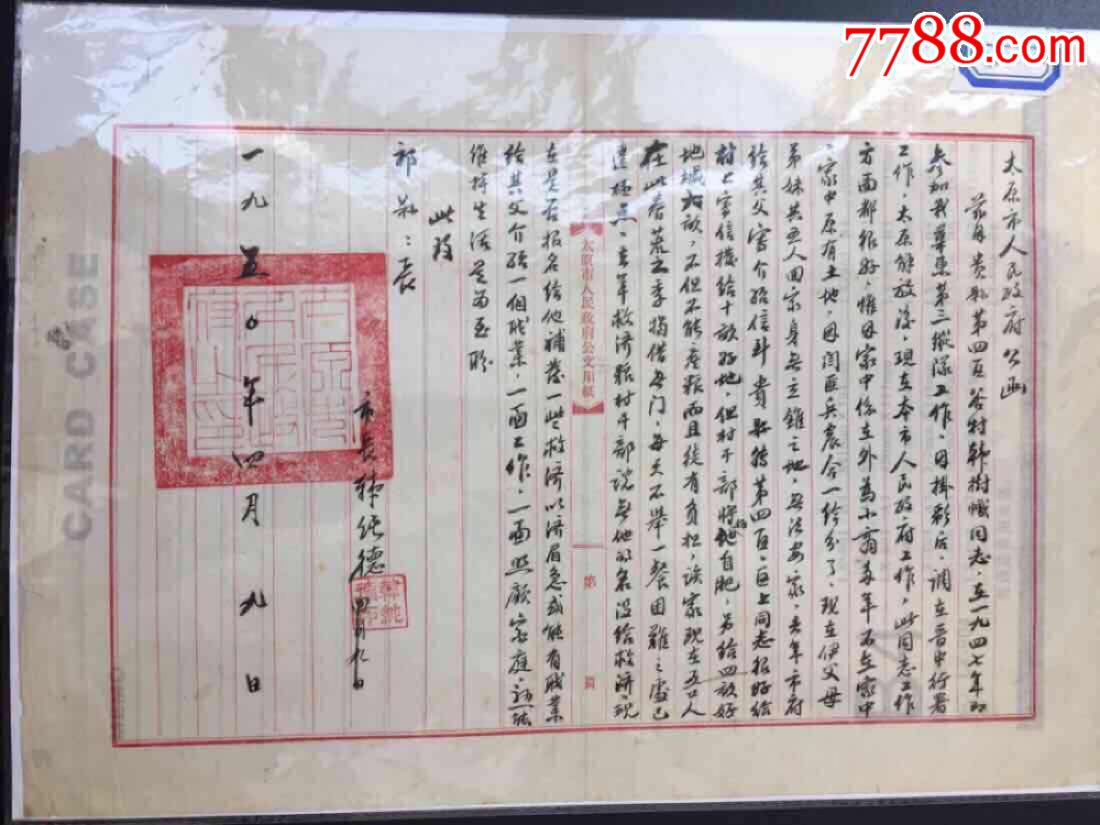 太原市人民政府公函
兹有贵县第四区谷村韩树帜同志,在一九四七年即
参加我华东第三纵队工作,因掛彩后,调在晋中行署
工作,太原解放后,现在本市人民政府工作,此同志工作
方面都很好,惟因家中係在外为小商多年不在家中
家中原有土地,因闫匪兵农合一给分了,现在伊父母
弟妹共五人回家身无立锥之地,无法安家,去年市府
给其父写介绍信到贵县转第四区,区上同志很好给
村上写信拨给十亩好地,但村干部将地自肥,另给四亩好
地城六亩,不但不能产粮而且统有负担,该家现在五口人
在此春荒之季揭借无门,每天不举一餐困难之处已
达极点,去年救济粮村干部说无他的名没给救济,现
在是否报名给他补发一些救济以济眉急或能有职业
给其父介绍一个职业,一面工作,一面照顾家庭,
维持生活是为至盼
此致
郭县长
市长韩纯德
四月九日
一九五〇年四月九日
太原市人民政府公文用纸
第 篇
CARD CASE
7788.com